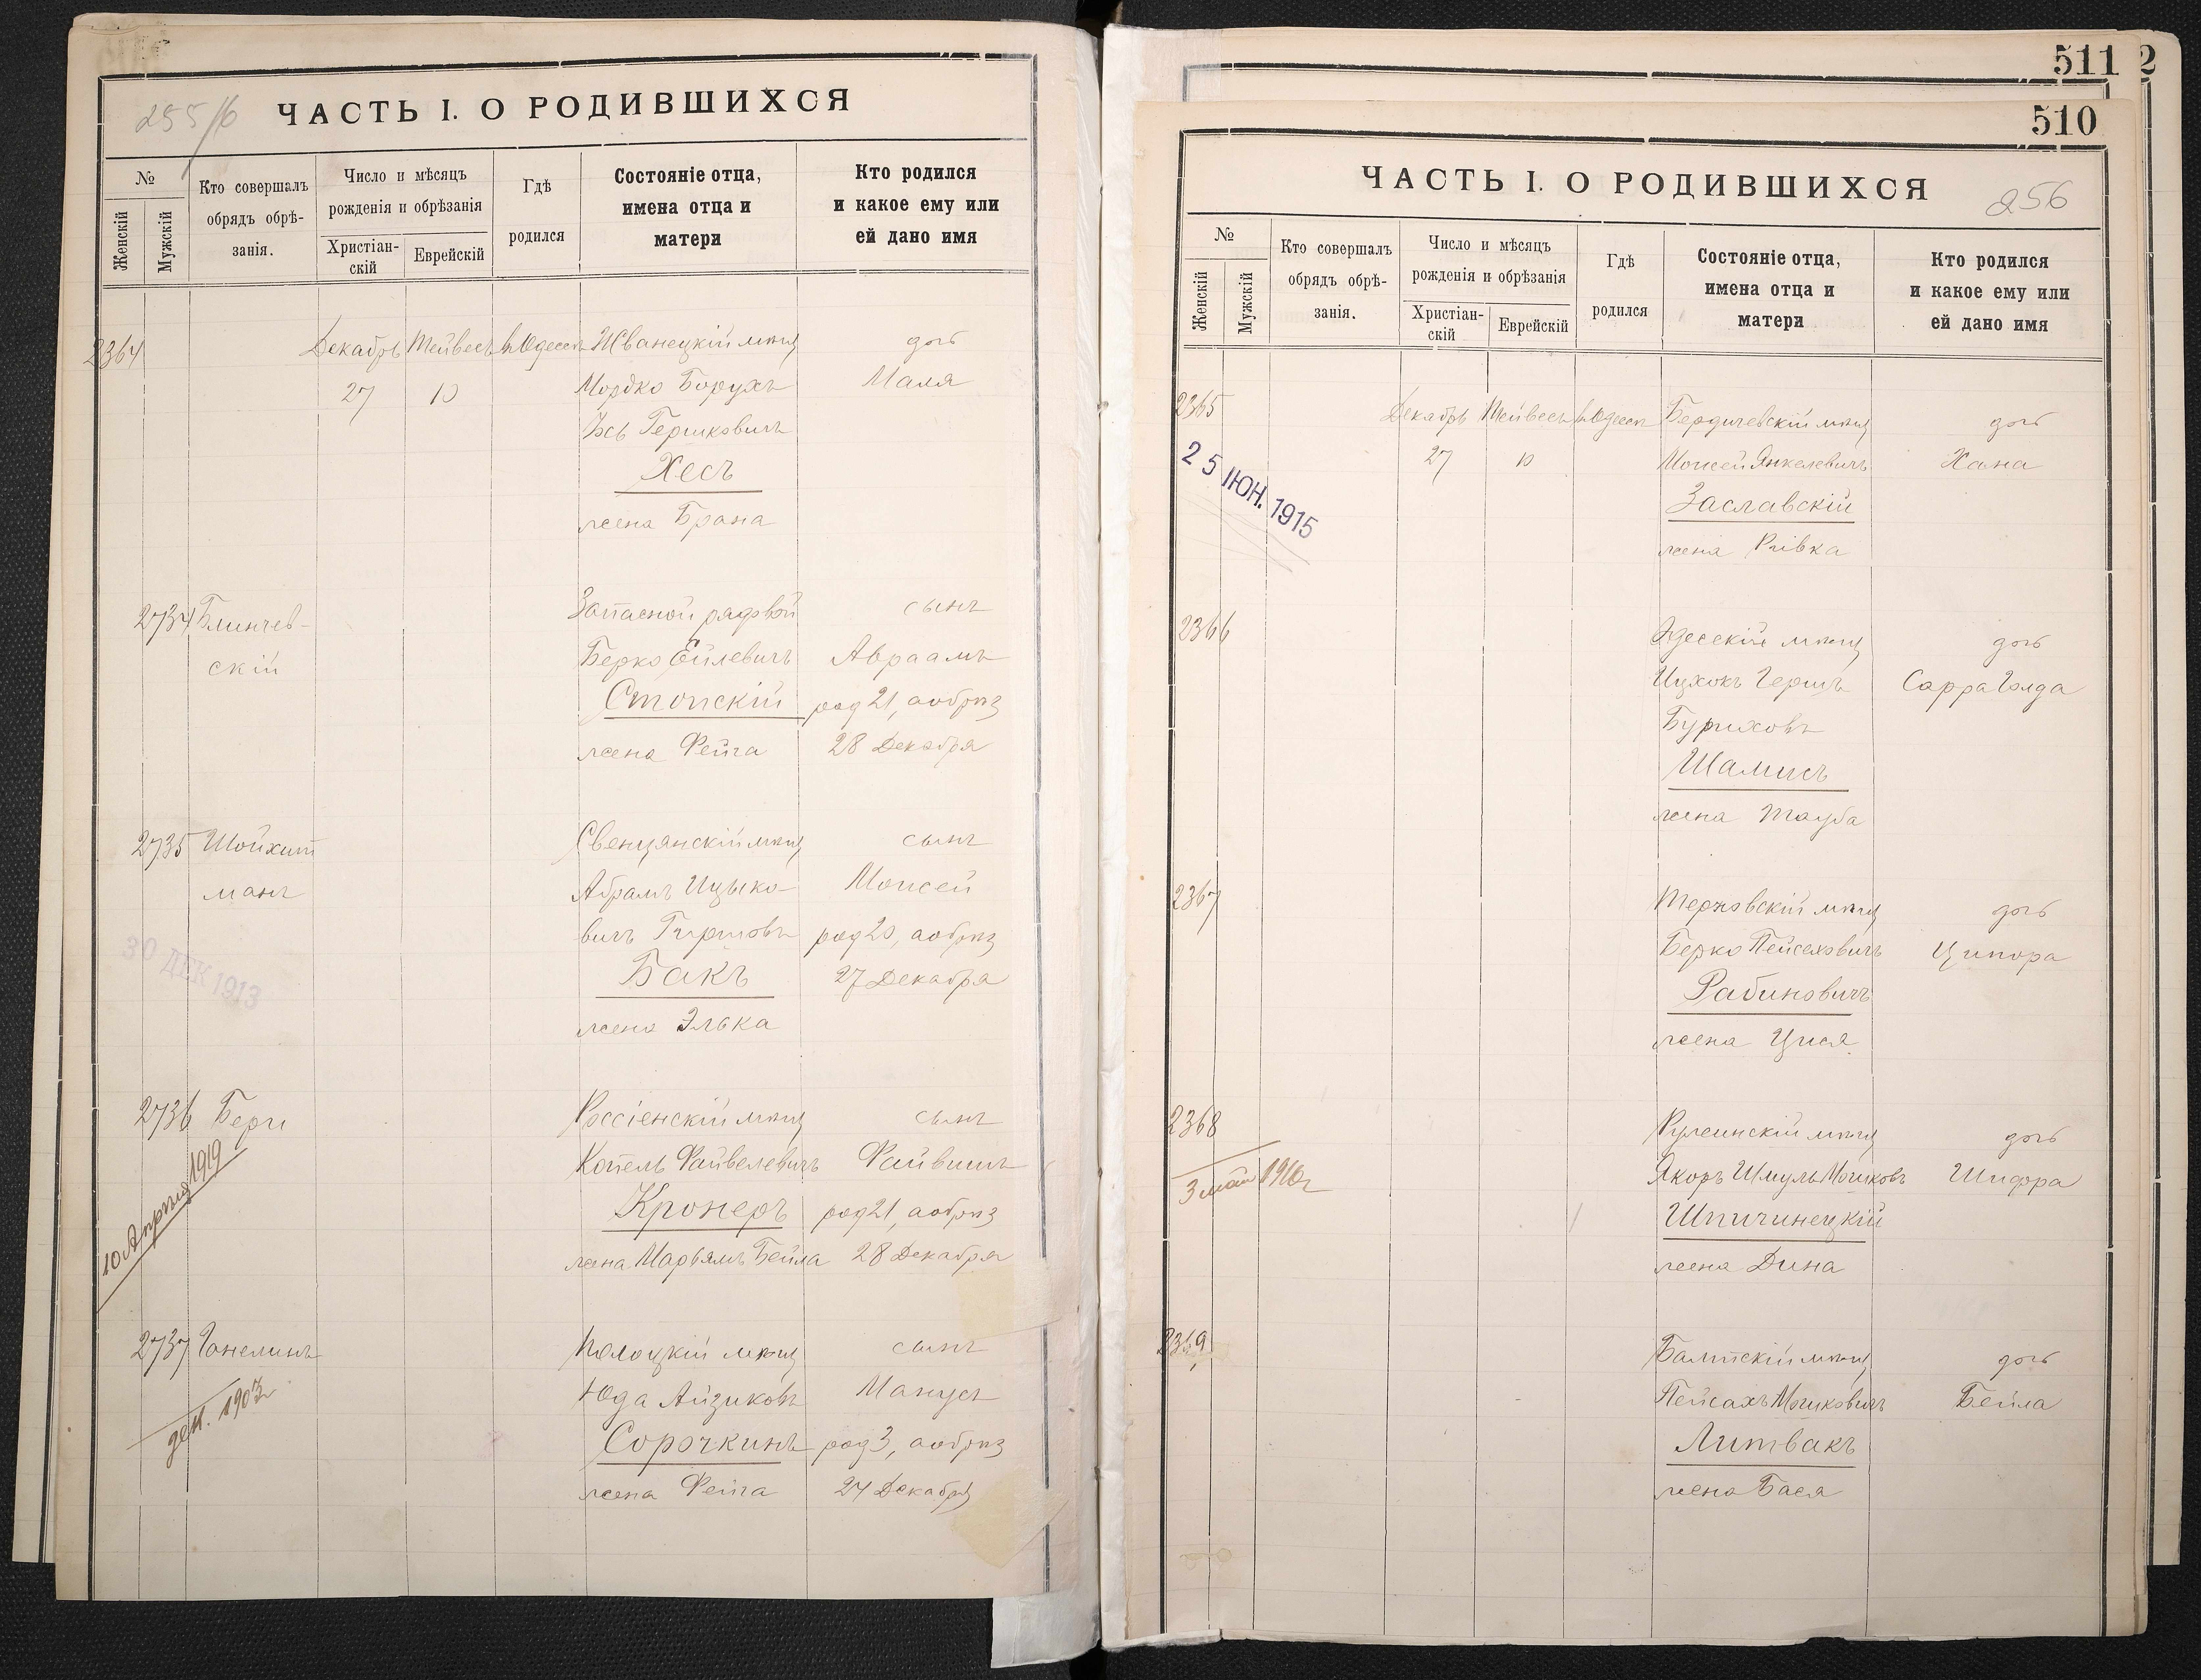 255/б
ЧАСТЬ I. О РОДИВШИХСЯ
№
Женскій
Мужскій
Кто совершалъ
обрядъ обрѣ-
занія.
Число и мѣсяцъ
рожденія и обрѣзанія
Христіан-
скій
Еврейскій
Гдѣ
родился
Состояніе отца,
имена отца и
матери
Кто родился
и какое ему или
ей дано имя
2364 Декабрь Тейвесъ въ Одессѣ Жванецкій мѣщ дочь
27 10 Мордко Борухъ Маля
Гершковичъ
Хесъ
жена Брана
2734 Блинчев- Запасной рядовой сынъ
скій Берко Ейлевичъ Авраамъ
Стопскій род 21, а обрѣз
жена Фейга 28 Декабря
2735 Шойхит Свенцянскій мѣщ сынъ
манъ Абрамъ Ицыко- Моисей
вичъ Гиршовъ род 20, а обрѣз
30 ДЕК 1913 Бакъ 27 Декабря
жена Элька
2736 Берг Россіенскій мѣщ сынъ
10 Апрѣля 1919 Копель Файвелевичъ Файвишъ
Кронеръ род 21, а обрѣз
жена Марьямъ Бейла 28 Декабря
2737 Ганелинъ Полоцкій мѣщ сынъ
Юда Айзиковъ Манусъ
Сорочкинъ род 3, а обрѣз
жена Фейга 24 Декабр
511
2
510
ЧАСТЬ I. О РОДИВШИХСЯ
256
№
Женскій
Мужскій
Кто совершалъ
обрядъ обрѣ-
занія.
Число и мѣсяцъ
рожденія и обрѣзанія
Христіан-
скій
Еврейскій
Гдѣ
родился
Состояніе отца,
имена отца и
матери
Кто родился
и какое ему или
ей дано имя
2365 Декабрь Тейвесъ въ Одессѣ Бердичевскій мѣщ дочь
25 ІЮН. 1915 27 10 Моисей Янкелевичъ Хана
Заславскій
жена Ривка
2366 Одесскій мѣщ дочь
Ицхокъ Гершъ Сарра Голда
Буриховъ
Шамисъ
жена Тауба
2367 мѣщ дочь
Берко Пейсаховичъ Ципора
Рабиновичъ
жена Цися
2368 Ружинскій мѣщ дочь
3 мая 1916 г Якоръ Шмуль Мошковъ Шифра
Шпичинецкій
жена Дина
2369 Балтскій мѣщ дочь
Пейсахъ Мошковичъ Бейла
Литвакъ
жена Бася